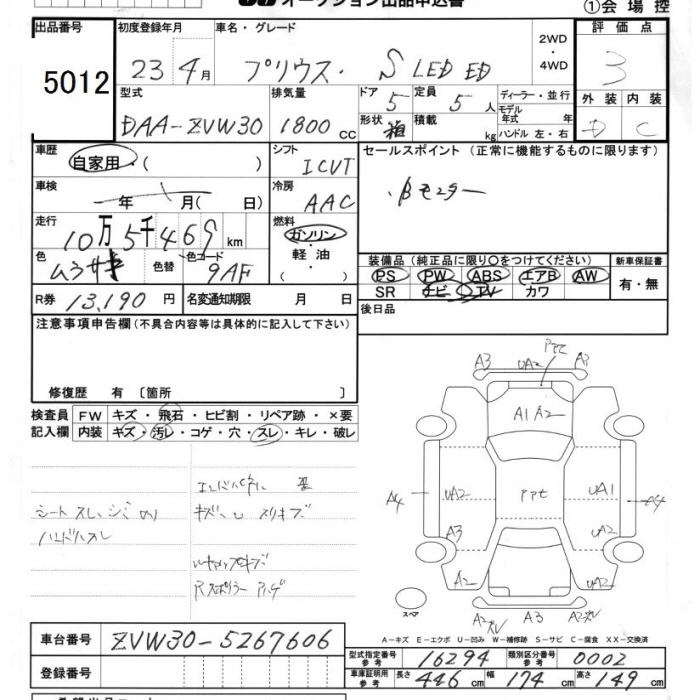 オークション出品申込書
①会場控
出品番号 初度登録年月 車名・グレード 評価点
5012 23 4月 プリウス・ S LED ED 2WD・4WD 3
型式 排気量 ドア 5 定員 5人 ディーラー・並行 外装 内装
DAA-ZVW30 1800cc 形状 箱 積載 kg モデル年式 年 D C
ハンドル 左・右
車歴 シフト セールスポイント (正常に機能するものに限ります)
自家用・( ) ICVT
車検 冷房 ・Bモニター
年 月( 日) AAC
走行 燃料
10万5千469km ガソリン・軽油
色 色替 色コード 装備品 (純正品に限り○をつけてください) 新車保証書
9AF PS PW ABS エアB AW 有・無
R券 13,190円 名変通知期限 月 日 SR ナビ TV カワ
注意事項申告欄 (不具合内容等は具体的に記入して下さい) 後日品
修復歴 有 〔箇所 〕
検査員 FW キズ・飛石・ヒビ割・リペア跡・×要
記入欄 内装 キズ・汚レ・コゲ・穴・スレ・キレ・破レ
A3 UA2 Ppt A3
A1 A2
A4 UA2 PPt UA1 A4
A3 UA2
A2 UA2
スペア
A2 A3 A2
A-キズ E-エクボ U-凹み W-補修跡 S-サビ C-腐食 XX-交換済
車台番号 ZVW30-5267606
型式指定番号 参考 16294 類別区分番号 参考 0002
登録番号 車庫証明用 参考 長さ 446cm 幅 174cm 高さ 149cm